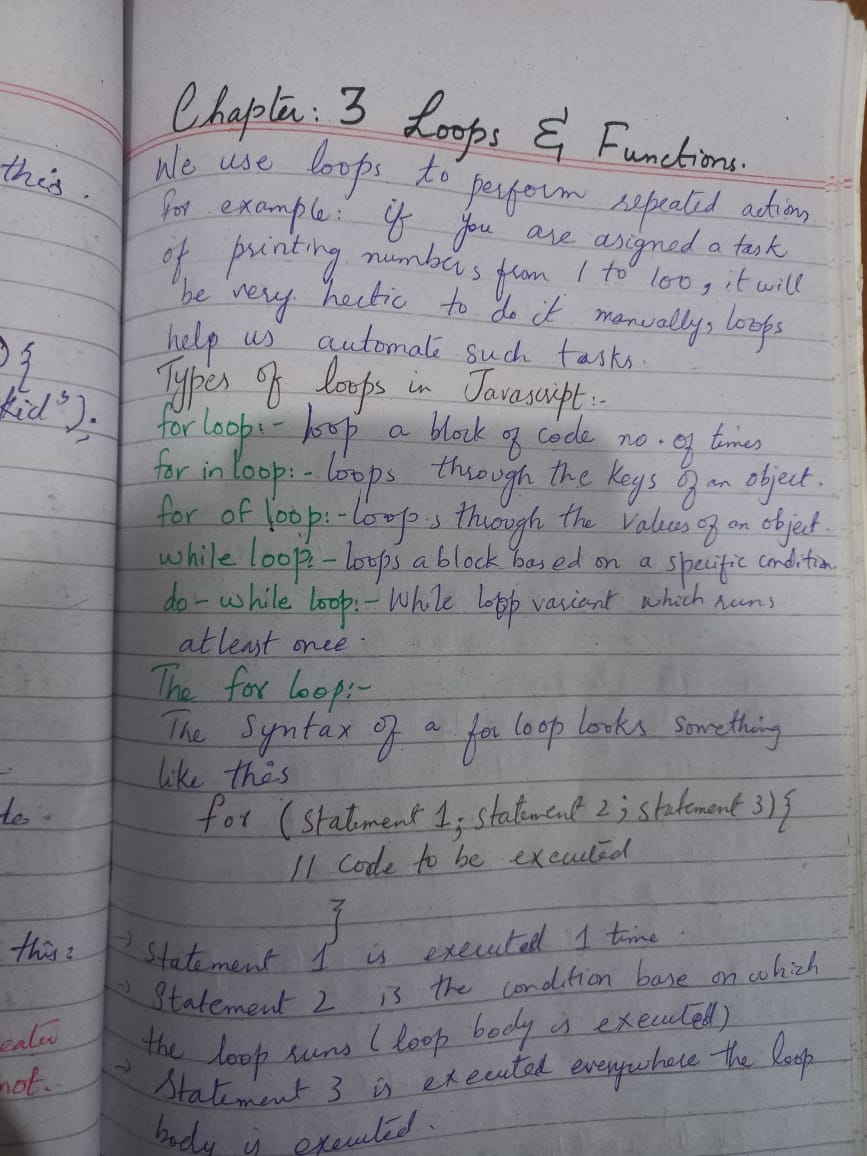 Chapter: 3 Loops & Functions.
We use loops to perform repeated actions
for example: if you are asigned a task
of printing numbers from 1 to 100, it will
be very hectic to do it manually, loops
help us automate such tasks.
Types of loops in Javascript:-
for loop:- loop a block of code no. of times
for in loop:- loops through the keys of an object.
for of loop:- loops through the values of an object.
while loop:- loops a block based on a specific condition.
do-while loop:- While loop variant which runs
atleast once.
The for loop:-
The Syntax of a for loop looks something
like this
for (statement 1; statement 2; statement 3){
// code to be executed
}
→ Statement 1 is executed 1 time.
→ Statement 2 is the condition base on which
the loop runs (loop body is executed)
→ Statement 3 is executed everywhere the loop
body is executed.
this.
){
kid");
this:
not.